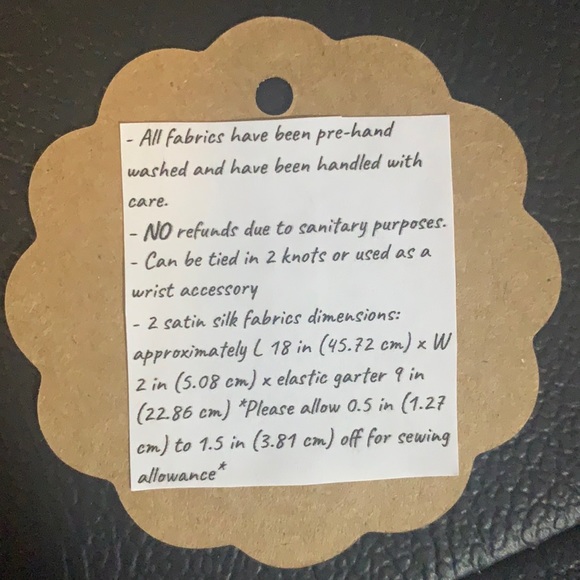 - All fabrics have been pre-hand
washed and have been handled with
care.
- NO refunds due to sanitary purposes.
- Can be tied in 2 knots or used as a
wrist accessory
- 2 satin silk fabrics dimensions:
approximately L 18 in (45.72 cm) x W
2 in (5.08 cm) x elastic garter 9 in
(22.86 cm) *Please allow 0.5 in (1.27
cm) to 1.5 in (3.81 cm) off for sewing
allowance*